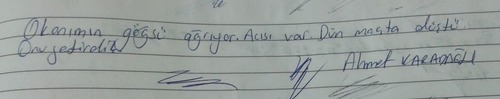 Okanımın göğsü ağrıyor. Acısı var. Dün maçta düştü.
Ahmet KARAOĞLU